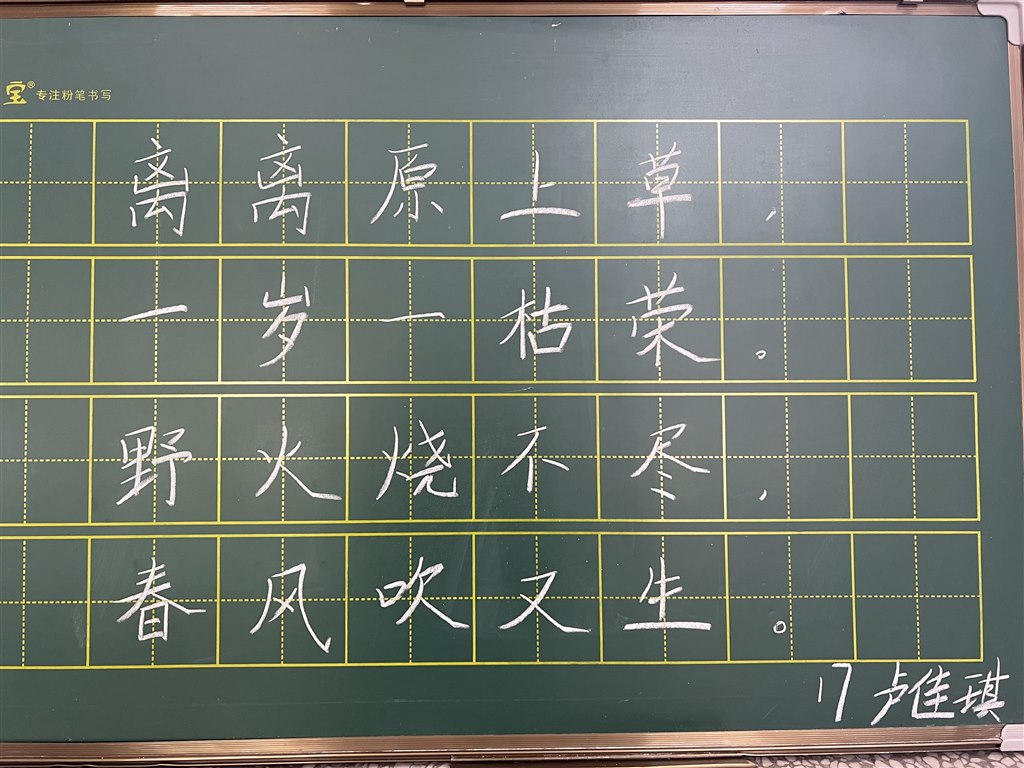 宝® 专注粉笔书写
离离原上草，
一岁一枯荣。
野火烧不尽，
春风吹又生。
17 卢佳琪